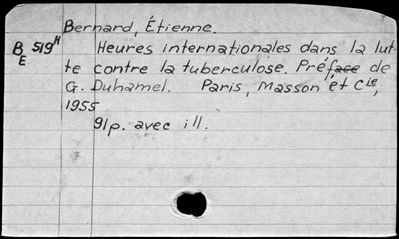 Bernard, Étienne.
BE 519H Heures internationales dans la lut-
te contre la tuberculose. Préface de
G. Duhamel. Paris, Masson et Cie,
1955
91p. avec ill.